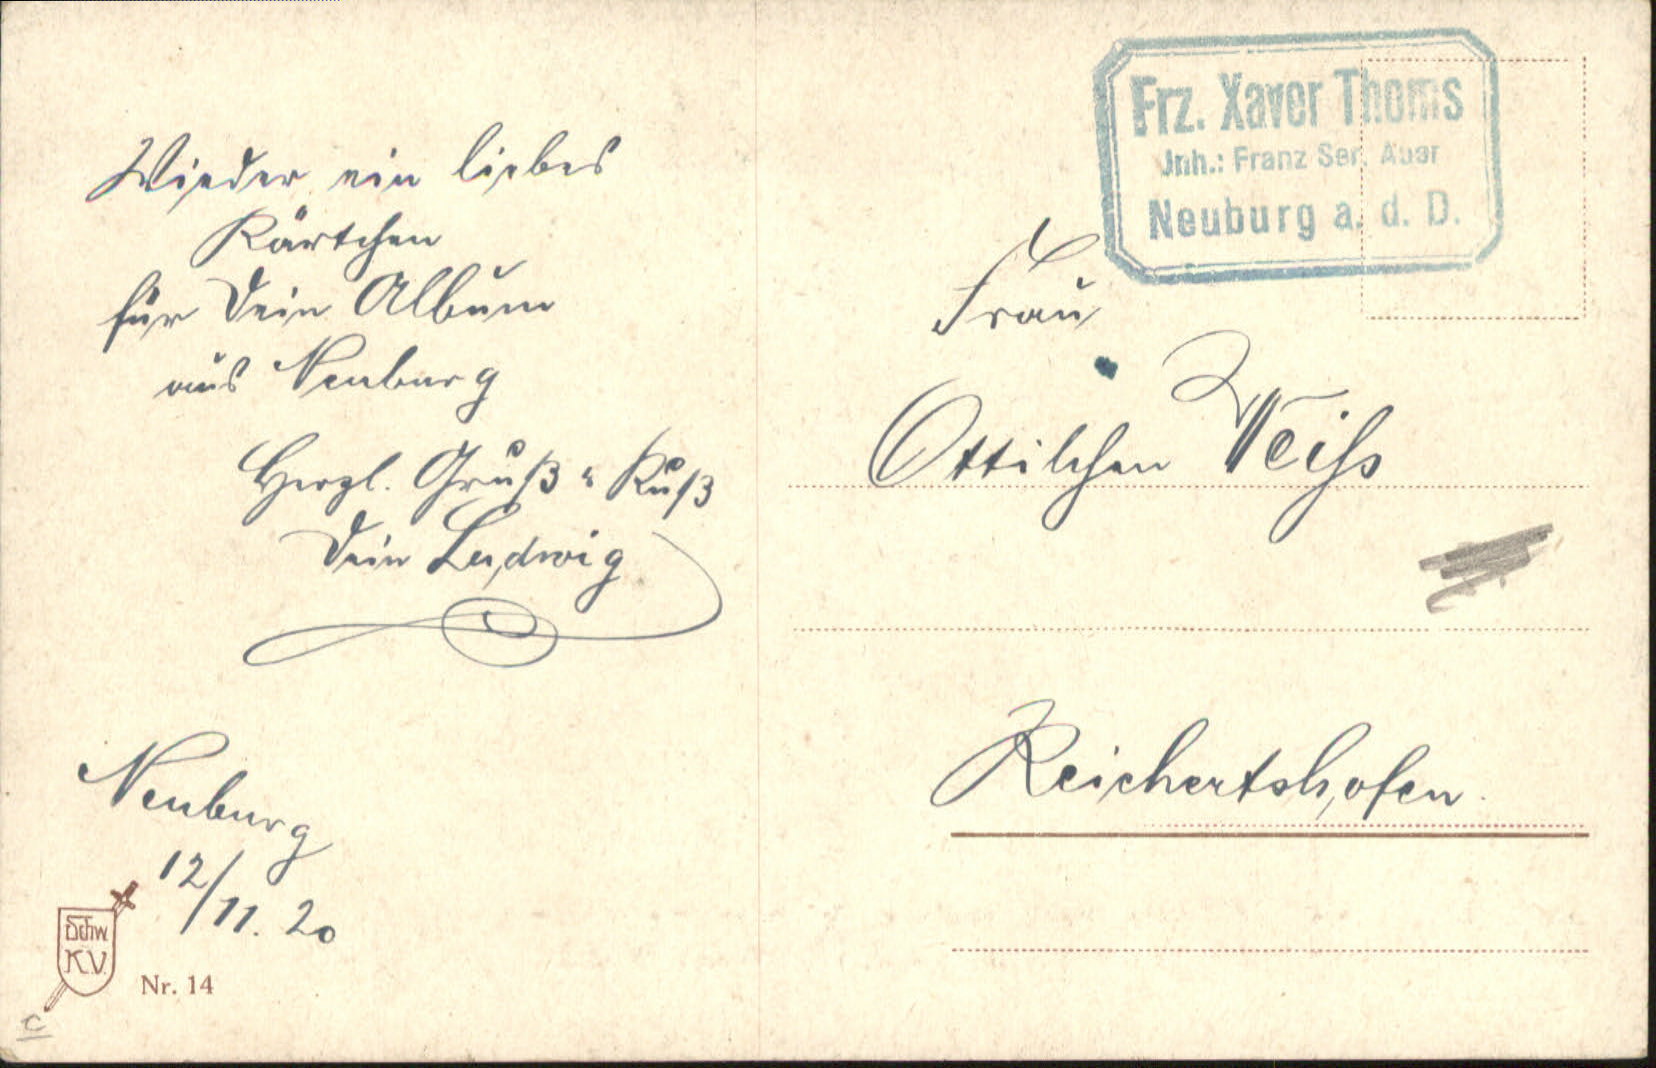 Wieder ein liebes
Kärtchen
für Dein Album
aus Neuburg
Herzl. Gruß u Kuß
Dein Ludwig
Neuburg
12/11. 20
Schw.
K.V.
Nr. 14
C
Frz. Xaver Thoms
Jnh.: Franz Ser. Auer
Neuburg a. d. D.
Frau
Ottilchen Weiss
Reichertshofen.